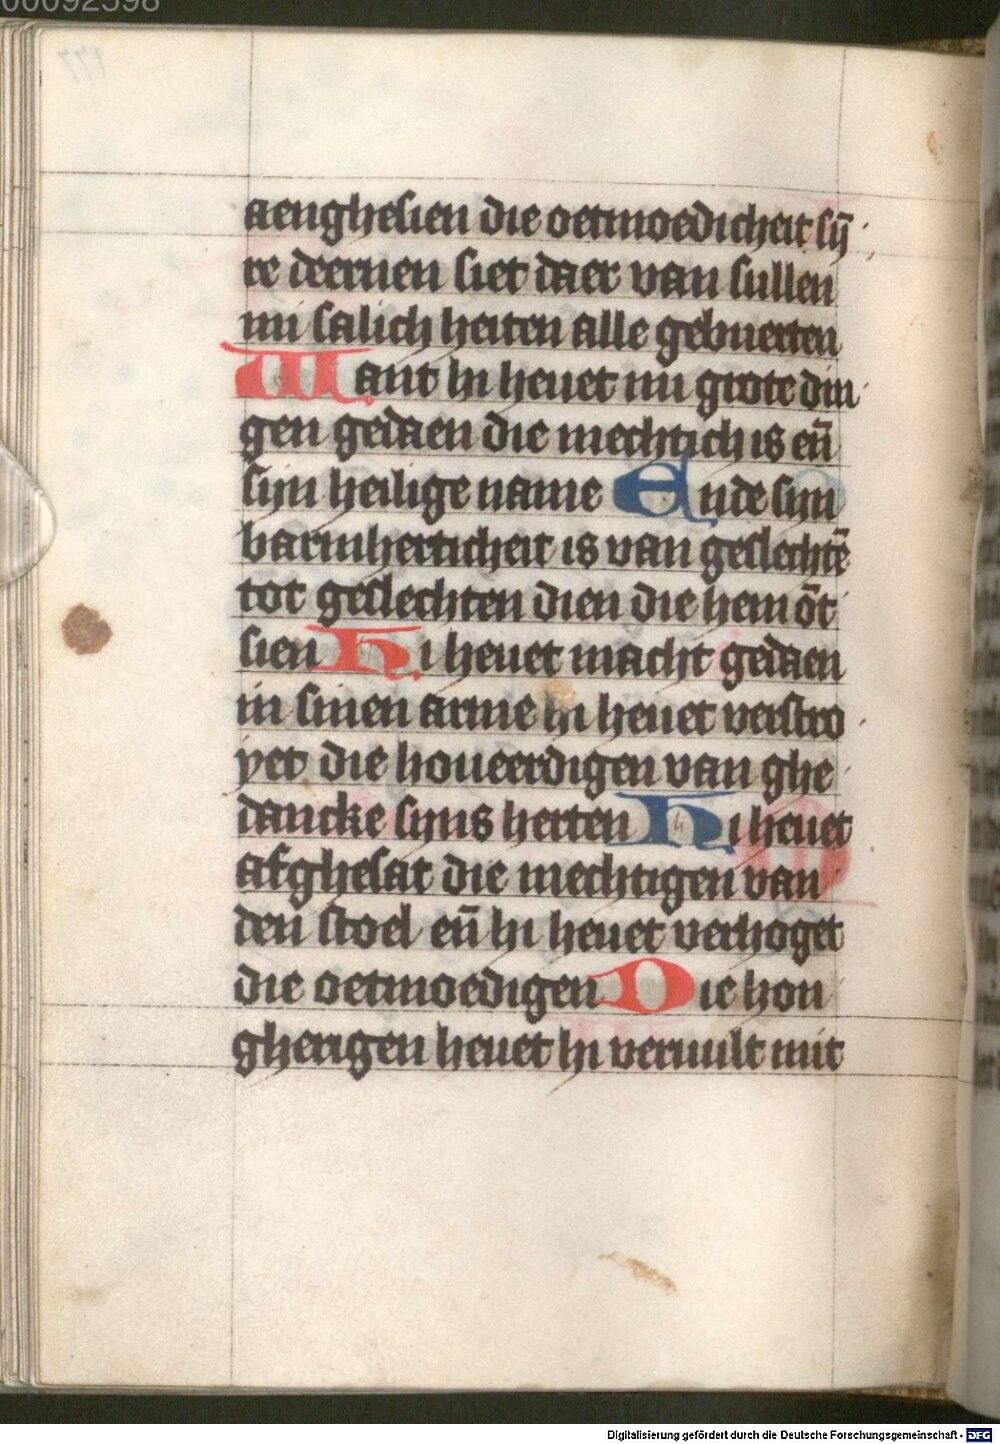 00092598
aenghesien die oetmoedicheit sy̅
re deernen siet daer van sullen
mi salich heiten alle gebuerten
Want hi heuet mi grote din
gen gedaen die mechtich is en̅
sijn heilige name Ende sijn
barmherticheit is van geslechte̅
tot geslechten dien die hem o̅t
sien Hi heuet macht gedaen
in sinen arme hi heuet verstro
yet die houeerdigen van ghe
dancke sijns herten Hi heuet
afghesat die mechtigen van
den stoel en̅ hi heuet verhoget
die oetmoedigen Die hon
gherigen heuet hi veruult mit
Digitalisierung gefördert durch die Deutsche Forschungsgemeinschaft - DFG